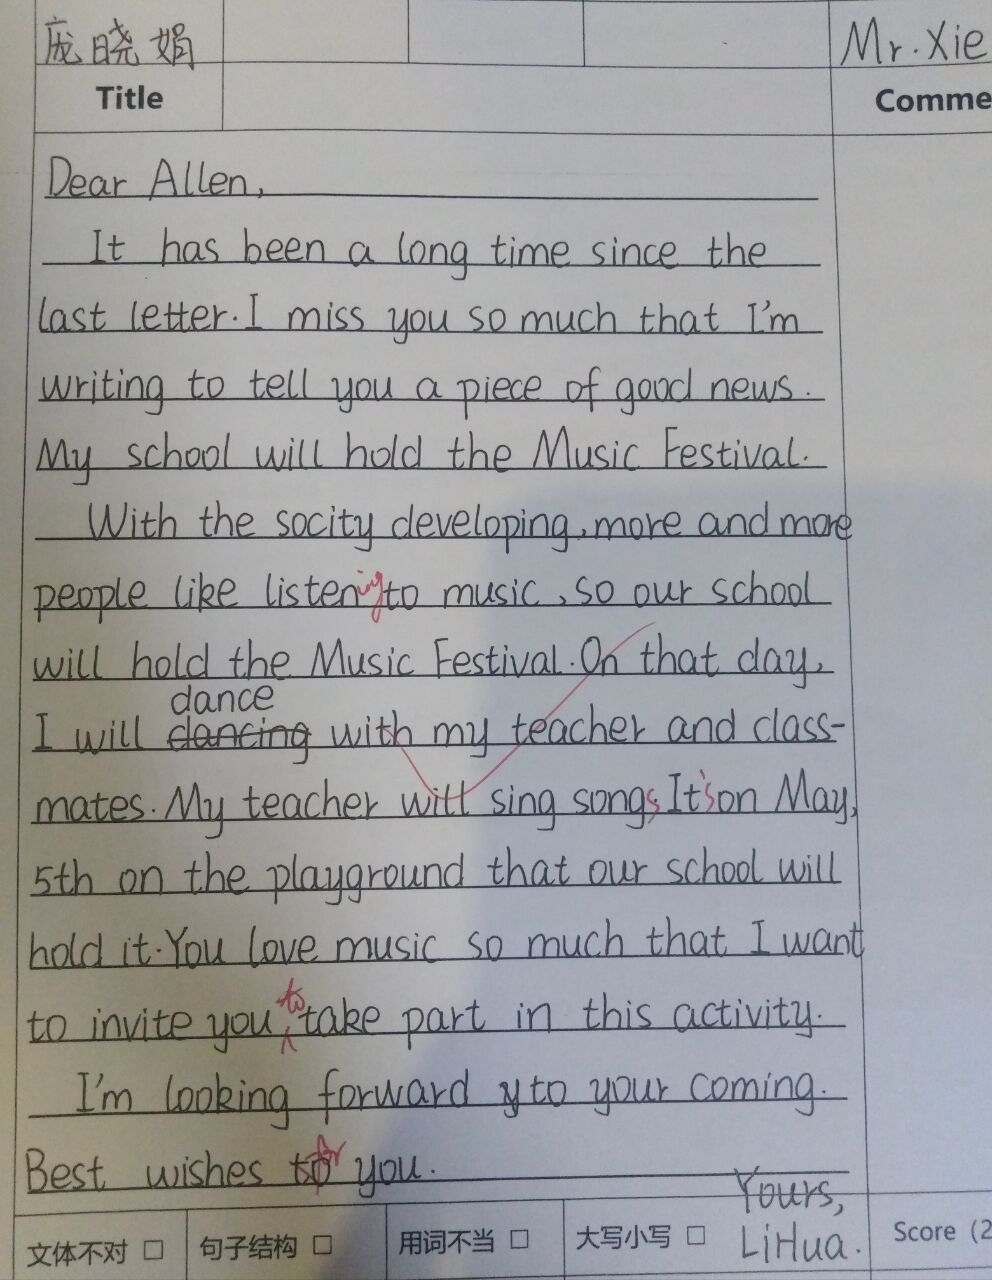 庞晓娟 Mr. Xie
Title Comme
Dear Allen,
It has been a long time since the
last letter. I miss you so much that I'm
writing to tell you a piece of good news.
My school will hold the Music Festival.
With the socity developing, more and more
people like listening to music, so our school
will hold the Music Festival. On that day,
dance
I will dancing with my teacher and class-
mates. My teacher will sing songs, It's on May,
5th on the playground that our school will
hold it. You love music so much that I want
to
to invite you take part in this activity.
I'm looking forward y to your coming.
Best wishes to for you.
Yours,
LiHua.
文体不对 □ 句子结构 □ 用词不当 □ 大写小写 □ Score (2